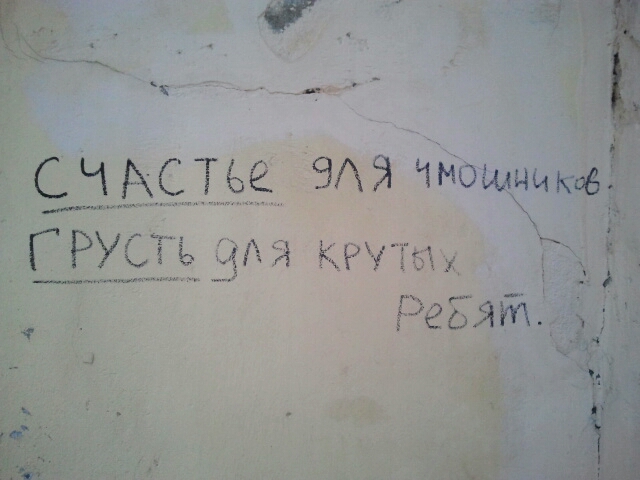 СЧАСТЬЕ ДЛЯ ЧМОШНИКОВ.
ГРУСТЬ ДЛЯ КРУТЫХ
РЕБЯТ.